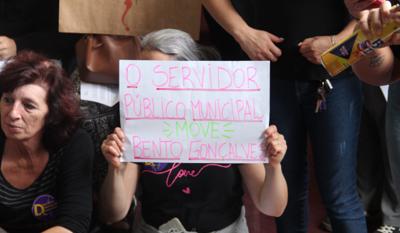 O SERVIDOR
PÚBLICO MUNICIPAL
MOVE
BENTO GONÇALVES
Love